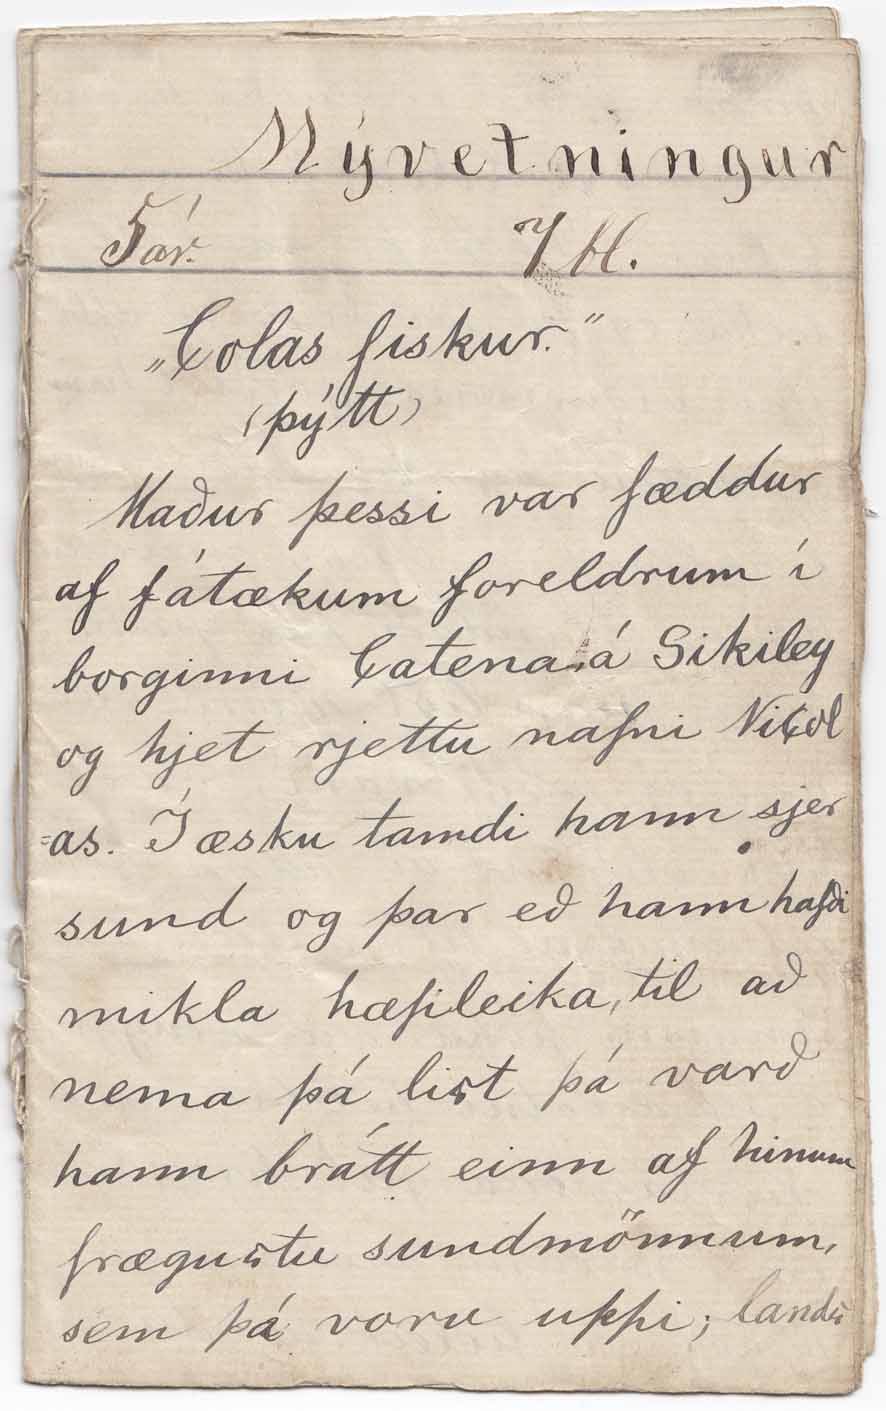 Mývetningur
5 ár. 7 bl.
„Colas fiskur.“
(þýtt)
Maður þessi var fæddur
af fátækum foreldrum í
borginni Catena á Sikiley
og hjet rjettu nafni Nicol
=as. Í æsku tamdi hann sjer
sund og þar eð hann hafði
mikla hæfileika, til að
nema þá list þá varð
hann brátt einn af hinum
frægustu sundmönnum,
sem þá voru uppi; lands